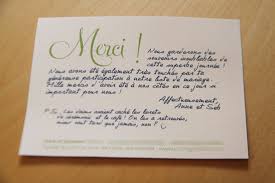 Merci !
Nous garderons des
souvenirs inoubliables de
cette superbe journée !
Nous avons été également très touchés par ta
généreuse participation à notre liste de mariage.
Mille mercis d'avoir été à nos côtés en ce jour si
important pour nous.
Affectueusement,
Anne et Seb
P.S. : Les avaient caché les livrets
de cérémonie et le café ! On les a retrouvés,
mieux vaut tard que jamais, non ?